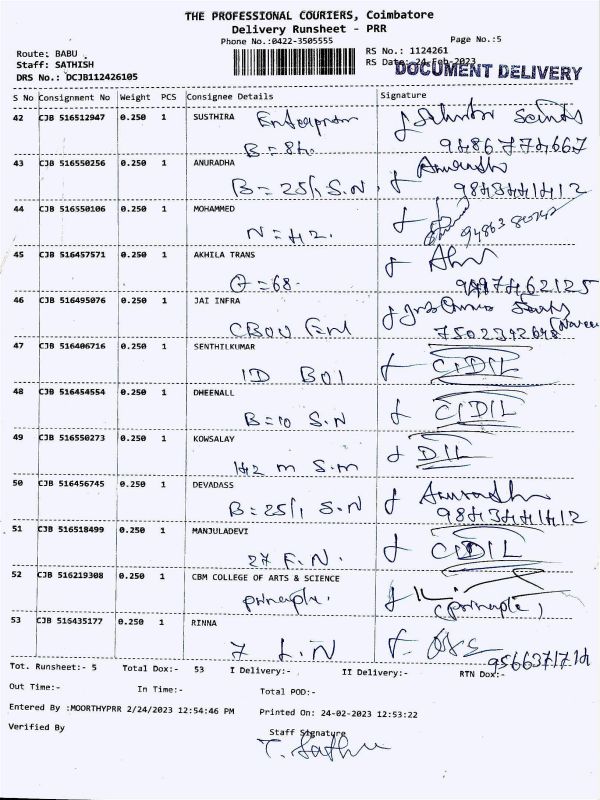 THE PROFESSIONAL COURIERS, Coimbatore
Delivery Runsheet - PRR
Phone No.:0422-3505555 Page No.:5
Route: BABU RS No.: 1124261
Staff: SATHISH RS Date:-24-Feb-2023
DOCUMENT DELIVERY
DRS No.: DCJB112426105
S No Consignment No Weight PCS Consignee Details Signature
42 CJB 516512947 0.250 1 SUSTHIRA
9486774667
43 CJB 516550256 0.250 1 ANURADHA Anuradha
B = 25/1 S.N. 9843441412
44 CJB 516550106 0.250 1 MOHAMMED
N = 42.
45 CJB 516457571 0.250 1 AKHILA TRANS
= 68.
46 CJB 516495076 0.250 1 JAI INFRA
47 CJB 516406716 0.250 1 SENTHILKUMAR
ID BOI
48 CJB 516454554 0.250 1 DHEENALL
B = 10 S.N
49 CJB 516550273 0.250 1 KOWSALAY D/L
142 m S.m
50 CJB 516456745 0.250 1 DEVADASS Anuradha
B = 25/1 S.N 9843441412
51 CJB 516518499 0.250 1 MANJULADEVI
27 F.N.
52 CJB 516219308 0.250 1 CBM COLLEGE OF ARTS & SCIENCE
principle. (principle)
53 CJB 516435177 0.250 1 RINNA
7 L.N 9566371714
Tot. Runsheet:- 5 Total Dox:- 53 I Delivery:- II Delivery:- RTN Dox:-
Out Time:- In Time:- Total POD:-
Entered By :MOORTHYPRR 2/24/2023 12:54:46 PM Printed On: 24-02-2023 12:53:22
Verified By Staff Signature